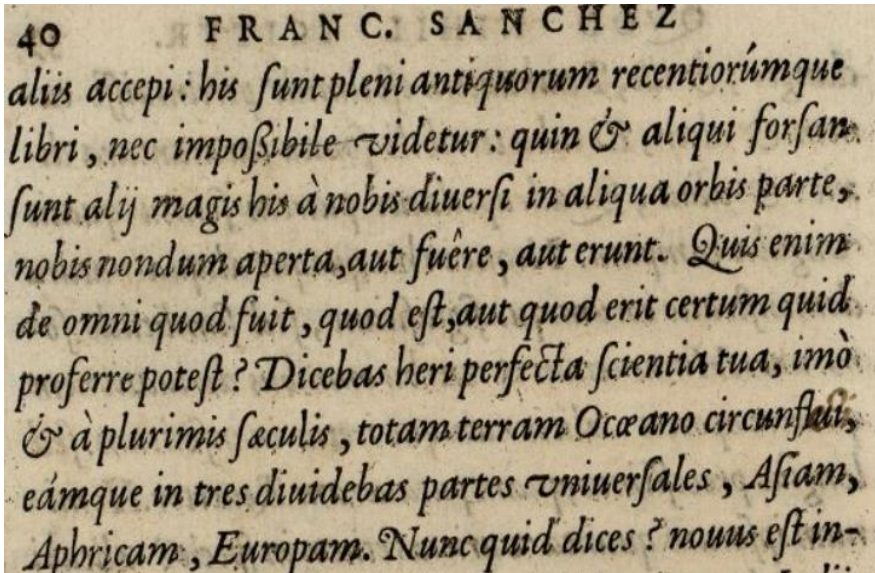 40 FRANC. SANCHEZ
aliis accepi: his ſunt pleni antiquorum recentiorúmque
libri, nec impoßibile videtur: quin & aliqui forſan
ſunt alij magis his à nobis diuerſi in aliqua orbis parte,
nobis nondum aperta, aut fuêre, aut erunt. Quis enim
de omni quod fuit, quod eſt, aut quod erit certum quid
proferre poteſt? Dicebas heri perfecta ſcientia tua, imò
& à plurimis ſæculis, totam terram Oceano circunflui,
eámque in tres diuidebas partes vniuerſales, Aſiam,
Aphricam, Europam. Nunc quid dices? nouus eſt in-